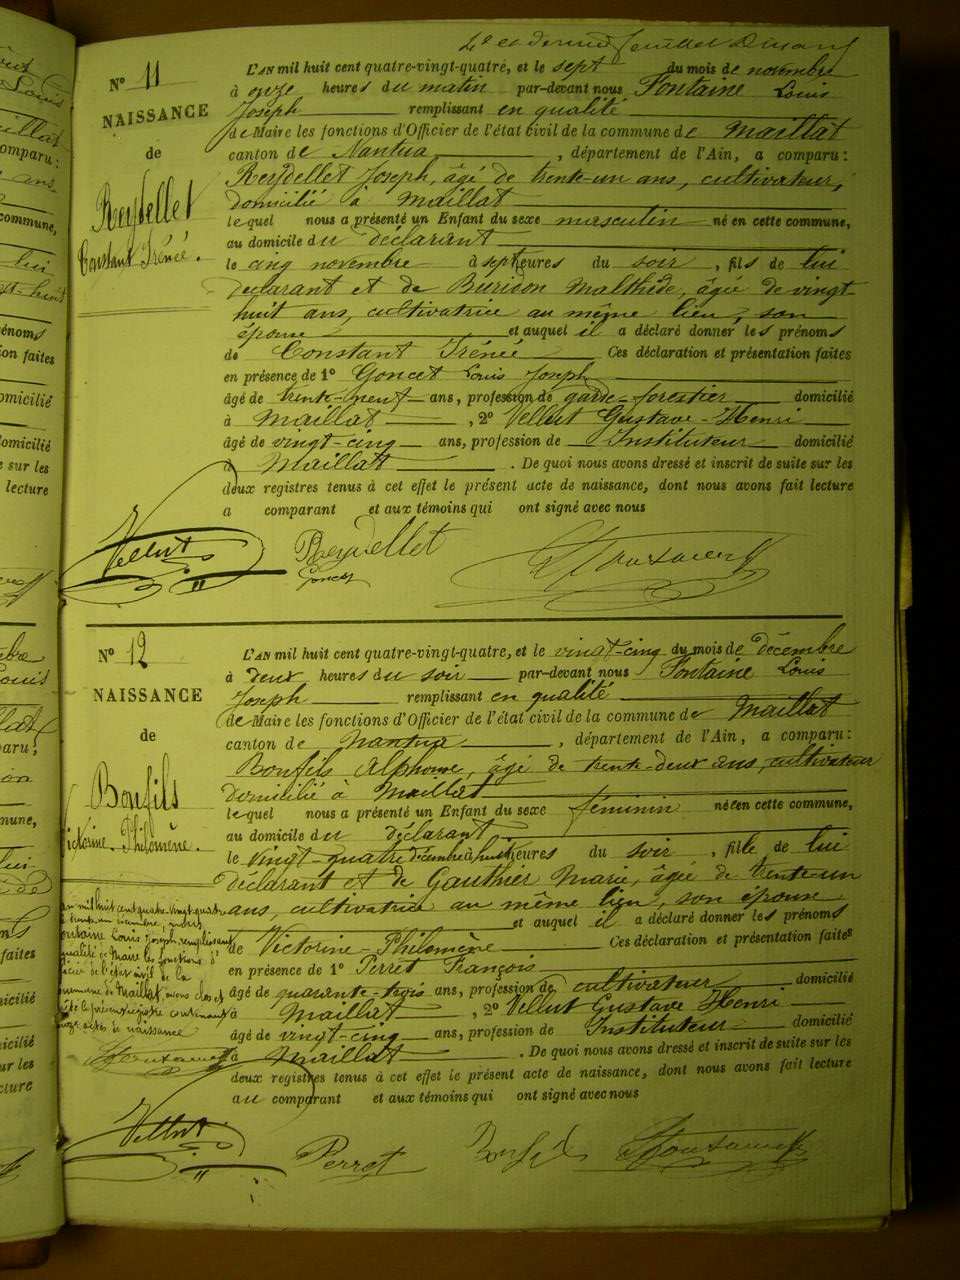 4e et dernier feuillet
No 11
NAISSANCE
de
Reydellet
Constant Irénée.
L'AN mil huit cent quatre-vingt-quatre, et le sept du mois de novembre
à onze heures du matin par-devant nous Fontaine Louis
Joseph remplissant en qualité
de Maire les fonctions d'Officier de l'état civil de la commune de Maillat
canton de Nantua, département de l'Ain, a comparu:
Reydellet Joseph, âgé de trente-un ans, cultivateur,
domicilié à Maillat
lequel nous a présenté un Enfant du sexe masculin né en cette commune,
au domicile du déclarant
le cinq novembre à sept heures du soir, fils de lui
déclarant et de Burison Malthide, âgée de vingt-
huit ans, cultivatrice au même lieu, son
épouse et auquel il a déclaré donner les prénoms
de Constant Irénée Ces déclaration et présentation faites
en présence de 1o Goncet Louis Joseph
âgé de trente-neuf ans, profession de garde-forestier domicilié
à Maillat, 2o Vellut Gustave-Henri
âgé de vingt-cinq ans, profession de Instituteur domicilié
à Maillat. De quoi nous avons dressé et inscrit de suite sur les
deux registres tenus à cet effet le présent acte de naissance, dont nous avons fait lecture
a comparant et aux témoins qui ont signé avec nous
Vellut Reydellet
Goncet
No 12
NAISSANCE
de
Bonfils
Victorine-Philomène.
L'AN mil huit cent quatre-vingt-quatre, et le vingt-cinq du mois de décembre
à deux heures du soir par-devant nous Fontaine Louis
Joseph remplissant en qualité
de Maire les fonctions d'Officier de l'état civil de la commune de Maillat
canton de Nantua, département de l'Ain, a comparu:
Bonfils Alphonse, âgé de trente-deux ans, cultivateur
domicilié à Maillat
lequel nous a présenté un Enfant du sexe féminin née en cette commune,
au domicile du déclarant
le vingt-quatre décembre à huit heures du soir, fille de lui
déclarant et de Gauthier Marie, âgée de trente-un
ans, cultivatrice au même lieu, son épouse
et auquel il a déclaré donner les prénoms
de Victorine-Philomène Ces déclaration et présentation faites
en présence de 1o Perret François
âgé de quarante-trois ans, profession de cultivateur domicilié
à Maillat, 2o Vellut Gustave Henri
âgé de vingt-cinq ans, profession de Instituteur domicilié
à Maillat. De quoi nous avons dressé et inscrit de suite sur les
deux registres tenus à cet effet le présent acte de naissance, dont nous avons fait lecture
au comparant et aux témoins qui ont signé avec nous
an mil huit cent quatre-vingt-quatre
trente-un décembre, nous
Fontaine Louis Joseph, remplissant
qualité de Maire les fonctions d'
officier de l'état civil de la
commune de Maillat, avons clos et
le présent registre contenant
actes de naissance
Vellut Perret Bonfils